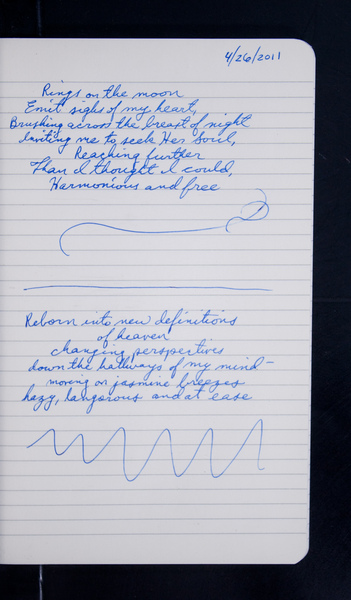 4/26/2011
Rings on the moon
Emit sighs of my heart,
Brushing across the breast of night
Inviting me to seek Her Soul,
Reaching further
Than I thought I could,
Harmonious and free
Reborn into new definitions
of heaven
changing perspectives
down the hallways of my mind—
moving on jasmine breezes
hazy, langorous and at ease